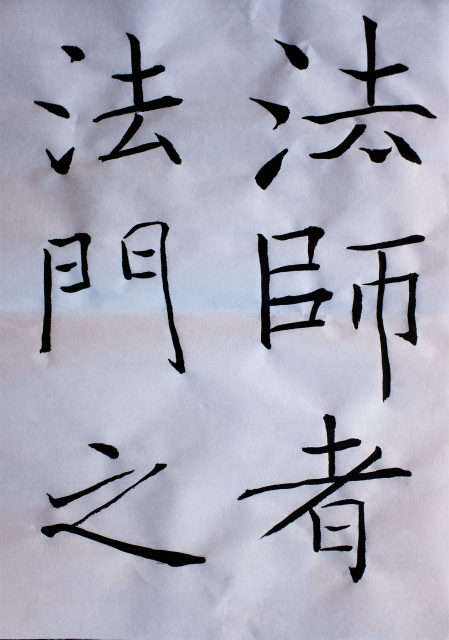 法師者
法門之